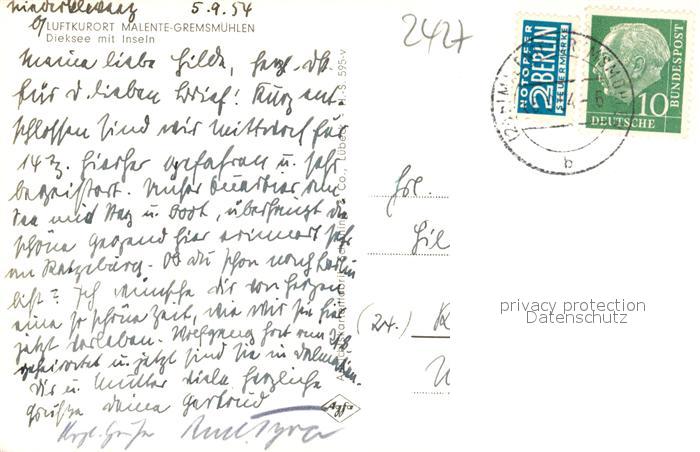 Niederkleveez 5.9.54
b/ LUFTKURORT MALENTE-GREMSMÜHLEN
Dieksee mit Inseln
Meine liebe Hilde, herzl. Dk.
für d. lieben Brief! Kurz ent-
schlossen sind wir Mittwoch für
14 Tg. hierher gefahren u. sehr
begeistert. Unser Quartier am
See mit Steg u. Boot, überhaupt die
schöne Gegend hier erinnert sehr
an Ratzeburg. Ob du schon nach Berlin
bist? Ich wünsche dir von Herzen
eine so schöne Zeit, wie wir sie hier
jetzt verleben. Wolfgang hat am
geheiratet u. jetzt sind sie in Dalmatien.
Dir u. Mutter viele herzliche
Grüße deine Gertrud
Herzl. Grüße
2427
NOTOPFER
2 BERLIN
STEUERMARKE
10
DEUTSCHE BUNDESPOST
b
Frl.
Hil
(24.) K
Co., Lübeck
S. 595-v
Agfa
privacy protection
Datenschutz